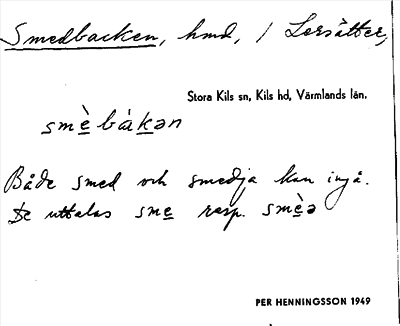 Smedbacken, hmd, / Lersätter,
Stora Kils sn, Kils hd, Värmlands län.
smè̠bàk̠ən
Både smed och smedja kan ingå.
De uttalas sme̠ resp. smè̠ə
PER HENNINGSSON 1949